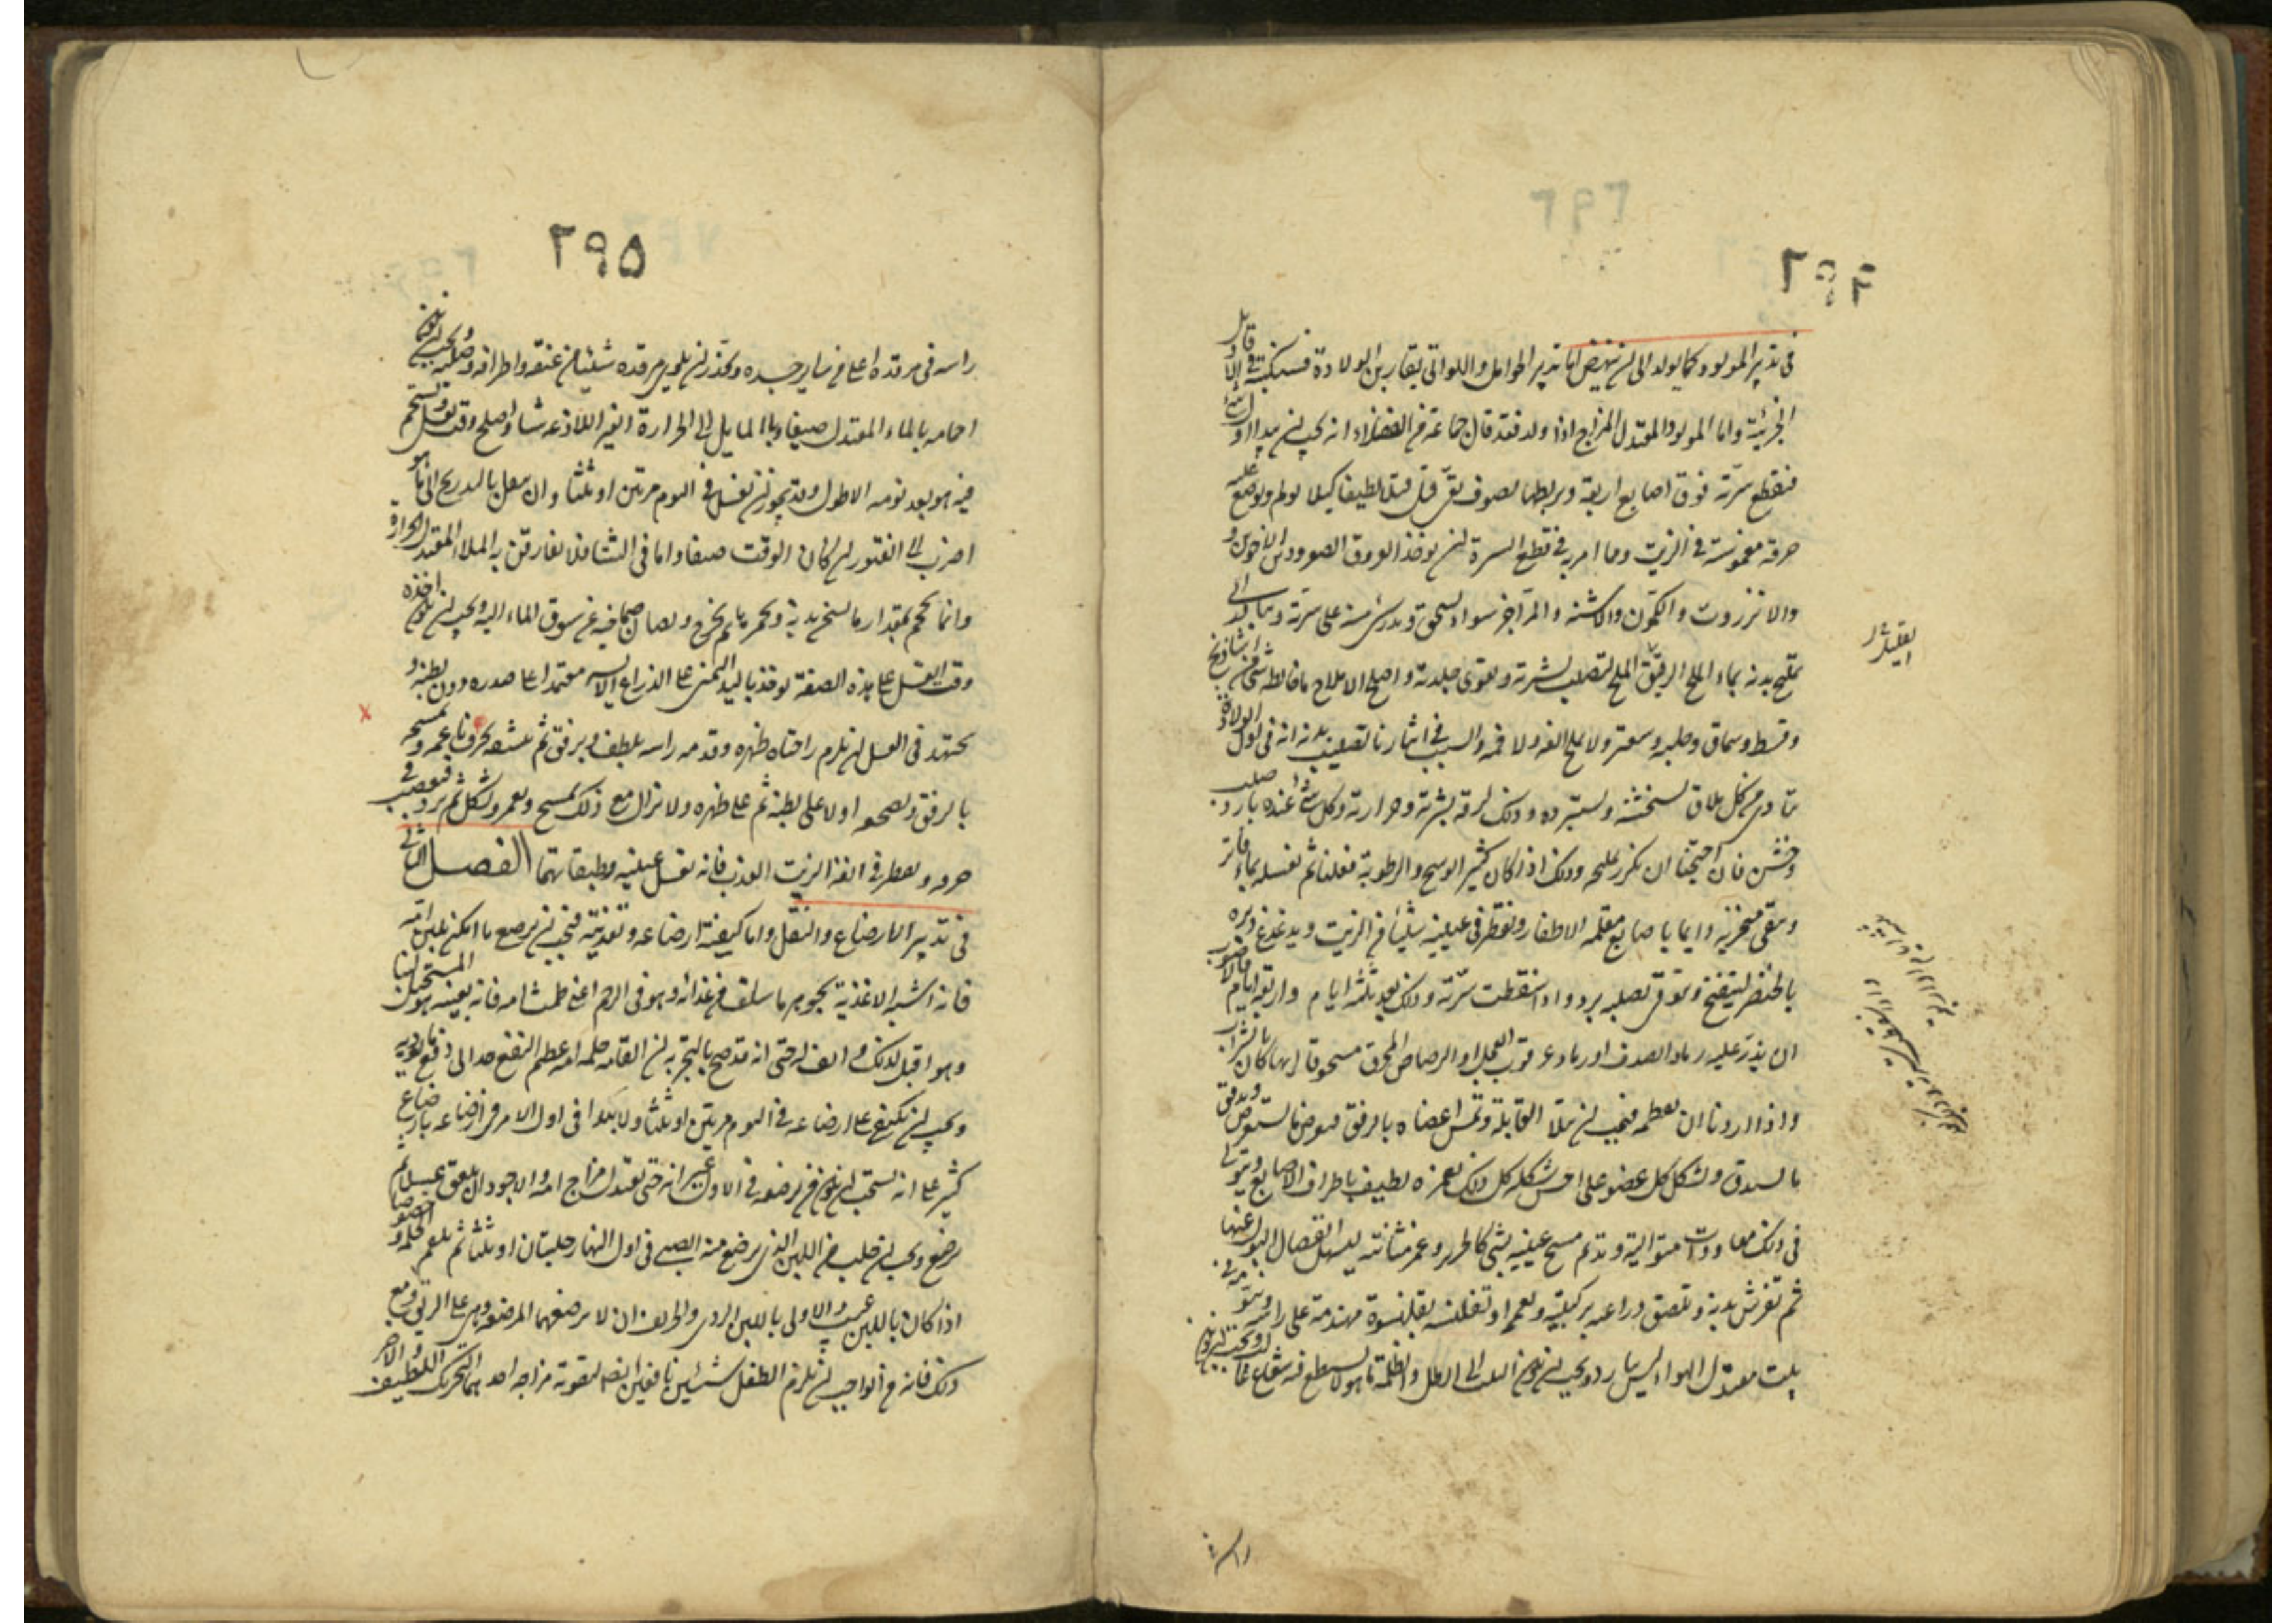 ٢٩٤
في تدبير المولود كما يولد الى ان ينهض اما تدبير الحوامل واللواتي يقاربن الولادة فسنكتبه في الاقاويل
الجزئية واما المولود المعتدل المزاج اذا ولد فقد قال جماعة من الفضلاء انه يجب ان يبدا اول شئ
فتقطع سرته فوق اصابع اربعة ويربط بصوف نقي فتل فتلا لطيفا كيلا يولم ويوضع عليه
خرقة مغموسة في الزيت ومما امر به في قطع السرة ان يوخذ العروق الصفر ودم الاخوين و
والانزروت والكمون والاشنه والمر اجزء سواء يسحق ويذر على سرته ويبادر الى
تمليح بدنه بماء الملح الرقيق لتصلب بشرته ويقوى جلدته واصلح الاملاح ما خالطه شئ من شاذنج
وقسط وسماق وحلبه وسعتر ولا يملح انفه ولا فمه والسبب في ايثارنا تصليب بدنه انه في اول الولادة
يتاذى من كل ملاق يستخشنه ويستبرده وذلك لرقة بشرته وحرارته وكل شئ عنده بارد صلب
وخشن فان احتجنا ان نكرر تمليحه وذلك اذا كان كثير الوسخ والرطوبة فعلنا ثم نغسله بماء فاتر
وينقى منخريه دايما باصابع مقلمه الاظفار ويقطر في عينيه شيئا من الزيت ويدغدغ دبره
بالخنصر لينفتح ويتوقى ان يصيبه برد واذا سقطت سرته وذلك بعد ثلثة ايام او اربعة ايام فالاصوب
ان يذر عليه رماد الصدف او رماد عرقوب العجل او الرصاص المحرق مسحوقا ايها كان بالشراب
واذا اردنا ان نقمطه فيجب ان تبدا القابلة وتمس اعضاه بالرفق فيعرض ما يستعرض ويدقق
ما يستدق ويشكل كل عضو على احسن شكله كل ذلك بغمز لطيف باطراف الاصابع ويتوالى
في ذلك معاودات متوالية وتديم مسح عينيه بشئ كالحرير وغمز مثانته ليسهل انفصال البول عنها
ثم تفرش يديه وتلصق ذراعيه بركبتيه وتعممه او تقلنسه بقلنسوة مهندمة على راسه وينوم في
بيت معتدل الهواء ليس ببارد ويجب ان يكون البيت الى الظل والظلمة ما هو لا يسطع فيه شعاع غالب ويجب ان يكون
راسه في
٢٩٥
راسه في مرقده اعلى من ساير جسده ويحذر ان يلوى مرقده شيئا من عنقه واطرافه وصلبه ويجب ان يكون
احمامه بالماء المعتدل صيفا وبالمايل الى الحرارة الغير اللاذعه شتاء واصلح وقت يغسل ويستحم
فيه هو بعد نومه الاطول وقد يجوز ان يغسل في اليوم مرتين او ثلثا وان ينقل بالتدريج الى ما هو
اضرب الى الفتور ان كان الوقت صيفا واما في الشتا فلا يفارقن به الماء المعتدل الحرارة
وانما يحمم بمقدار ما يسخن بدنه ويحمر ثم يخرج ويصان صماخيه عن سبوق الماء اليه ويجب ان يكون اخذه
وقت الغسل على هذه الصفة يوخذ باليد اليمنى على الذراع الايسر معتمدا على صدره دون بطنه و
يجتهد في الغسل ان يلزم راحتاه ظهره وقدمه راسه بلطف وبرفق ثم ينشفه بخرقة ناعمه ويمسحه
بالرفق ويضجعه اولا على بطنه ثم على ظهره ولا يزال مع ذلك يمسح ويغمز ويشكل ثم يرد فيعصب في
خرقه ويقطر في انفه الزيت العذب فانه يغسل عينيه وطبقاتهما الفصل الثاني
في تدبير الارضاع والنقل واما كيفية ارضاعه وتغذيته فيجب ان يرضع ما امكن بلبن امه
فانه اشبه الاغذية بجوهر ما سلف من غذائه وهو في الرحم اعنى طمث امه فانه بعينه هو المستحيل لبنا
وهو اقبل لذلك والف له حتى انه قد صح بالتجربة ان القامه حلمه امه عظيم النفع جدا في دفع ما يوذيه
ويجب ان يكتفى على ارضاعه في اليوم مرتين او ثلثا ولا يبدا في اول الامر في ارضاعه بارضاع
كثير على انه يستحب ان يكون من يرضعه في الاول غير امه حتى يعتدل مزاج امه والاجود ان يلعق عسلا ثم
يرضع ويجب ان يحلب من اللبن الذي يرضع منه الصبي في اول النهار حلبتان او ثلثا ثم يلقم الحلمة وخصوصا
اذا كان باللبن عيب والاولى باللبن الردى والحريف ان لا ترضعهما المرضعه وهى على الريق ومع
ذلك فانه من الواجب ان يلزم الطفل شيئين نافعين ايضا لتقوية مزاجه احدهما التحريك اللطيف والاخر